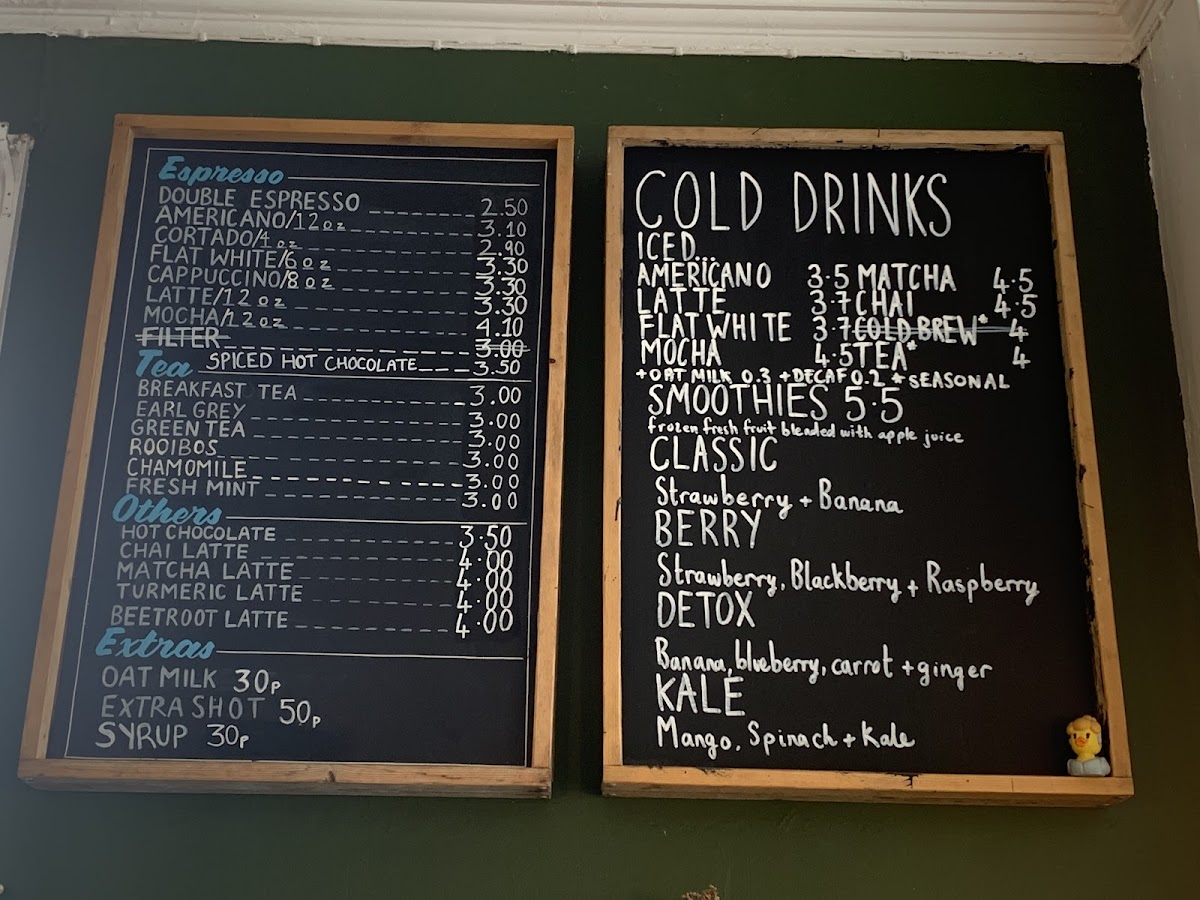 Espresso
DOUBLE ESPRESSO 2.50
AMERICANO/12oz 3.10
CORTADO/4oz 2.90
FLAT WHITE/6oz 3.30
CAPPUCCINO/8oz 3.30
LATTE/12oz 3.30
MOCHA/12oz 4.10
FILTER 3.00
Tea SPICED HOT CHOCOLATE 3.50
BREAKFAST TEA 3.00
EARL GREY 3.00
GREEN TEA 3.00
ROOIBOS 3.00
CHAMOMILE 3.00
FRESH MINT 3.00
Others
HOT CHOCOLATE 3.50
CHAI LATTE 4.00
MATCHA LATTE 4.00
TURMERIC LATTE 4.00
BEETROOT LATTE 4.00
Extras
OAT MILK 30p
EXTRA SHOT 50p
SYRUP 30p
COLD DRINKS
ICED...
AMERICANO 3.5 MATCHA 4.5
LATTE 3.7 CHAI 4.5
FLAT WHITE 3.7 COLD BREW* 4
MOCHA 4.5 TEA* 4
+OAT MILK 0.3 +DECAF 0.2 * SEASONAL
SMOOTHIES 5.5
frozen fresh fruit blended with apple juice
CLASSIC
Strawberry + Banana
BERRY
Strawberry, Blackberry + Raspberry
DETOX
Banana, blueberry, carrot + ginger
KALE
Mango, Spinach + Kale